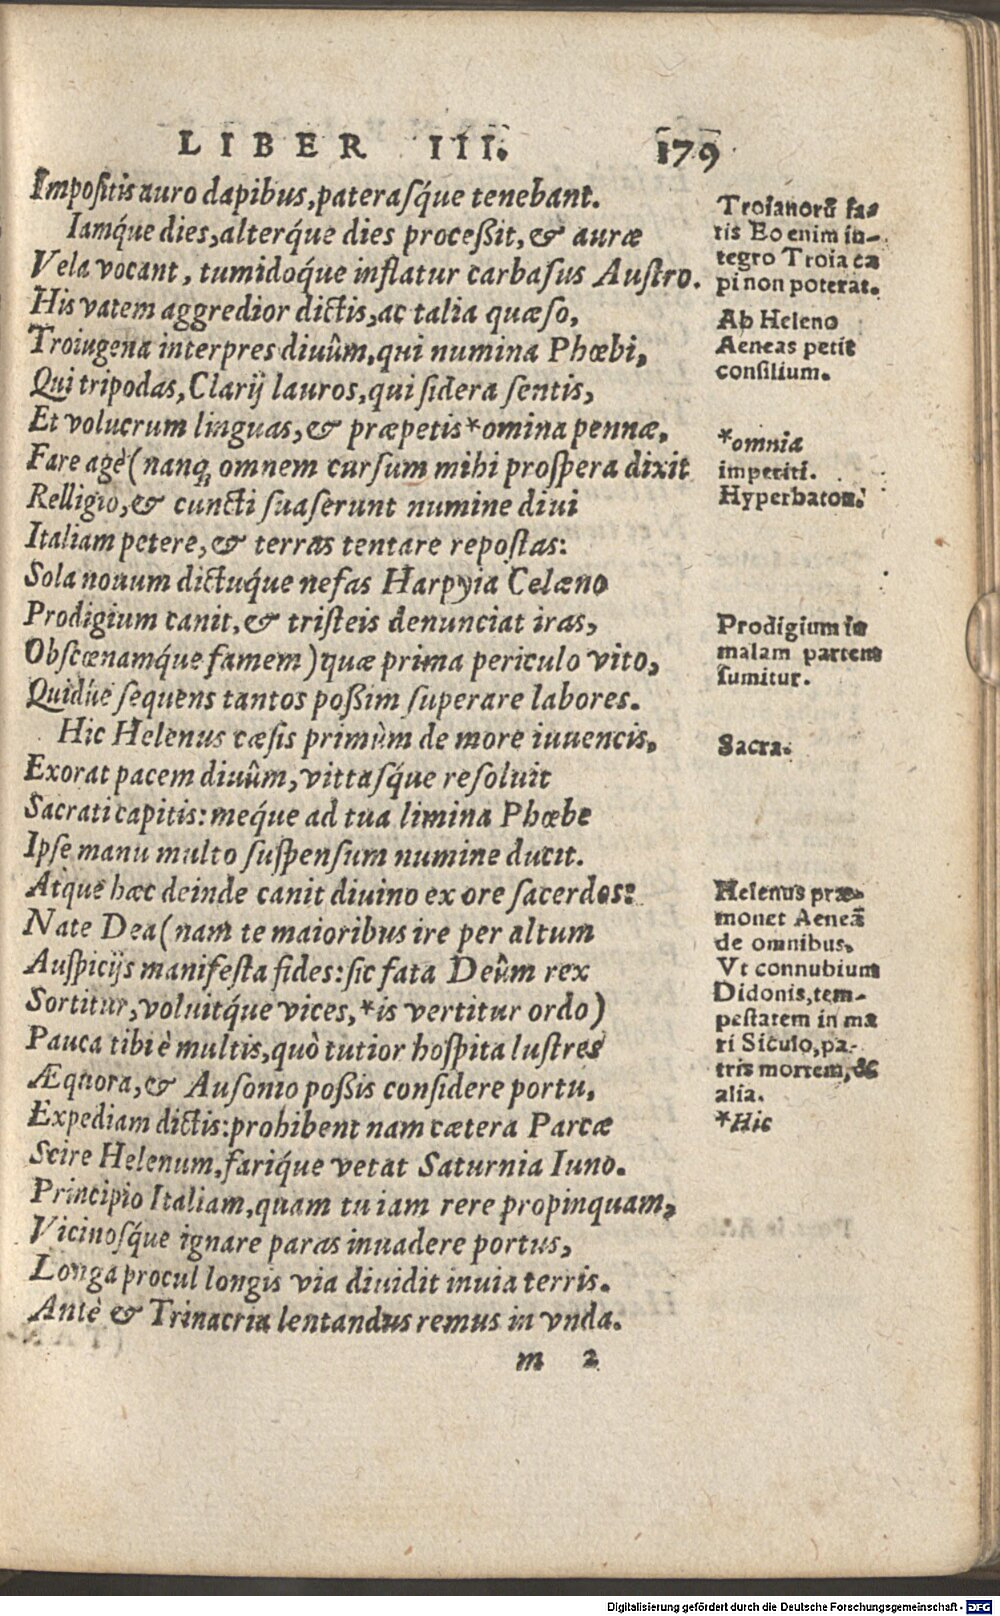 LIBER III. 179
Impositis auro dapibus, paterasq́ue tenebant.
Iamq́ue dies, alterq́ue dies proceßit, & auræ
Vela vocant, tumidoq́ue inflatur carbasus Austro.
His vatem aggredior dictis, ac talia quæso,
Troiugena interpres diuûm, qui numina Phœbi,
Qui tripodas, Clarij lauros, qui sidera sentis,
Et volucrum linguas, & præpetis *omina pennæ,
Fare agè (nanq; omnem cursum mihi prospera dixit
Relligio, & cuncti suaserunt numine diui
Italiam petere, & terras tentare repostas:
Sola nouum dictuq́ue nefas Harpyia Celæno
Prodigium canit, & tristeis denunciat iras,
Obscœnamq́ue famem) quæ prima periculo vito,
Quidúe sequens tantos poßim superare labores.
Hic Helenus cæsis primùm de more iuuencis,
Exorat pacem diuûm, vittasq́ue resoluit
Sacrati capitis: meq́ue ad tua limina Phœbe
Ipse manu multo suspensum numine ducit.
Atque hæc deinde canit diuino ex ore sacerdos:
Nate Dea (nam te maioribus ire per altum
Auspicijs manifesta fides: sic fata Deûm rex
Sortitur, voluitq́ue vices, *is vertitur ordo)
Pauca tibi è multis, quò tutior hospita lustres
Æquora, & Ausonio poßis considere portu,
Expediam dictis: prohibent nam cætera Parcæ
Scire Helenum, fariq́ue vetat Saturnia Iuno.
Principio Italiam, quam tu iam rere propinquam,
Vicinosq́ue ignare paras inuadere portus,
Longa procul longis via diuidit inuia terris.
Antè & Trinacria lentandus remus in vnda.
m 2
Troianorũ fa-
tis Eo enim in-
tegro Troia ca
pi non poterat.
Ab Heleno
Aeneas petit
consilium.
*omnia
imperiti.
Hyperbaton.
Prodigium in
malam partem
sumitur.
Sacra.
Helenus præ-
monet Aeneã
de omnibus,
Vt connubium
Didonis, tem-
pestatem in ma
ri Siculo, pa-
tris mortem, &
alia.
*Hic
Digitalisierung gefördert durch die Deutsche Forschungsgemeinschaft - DFG